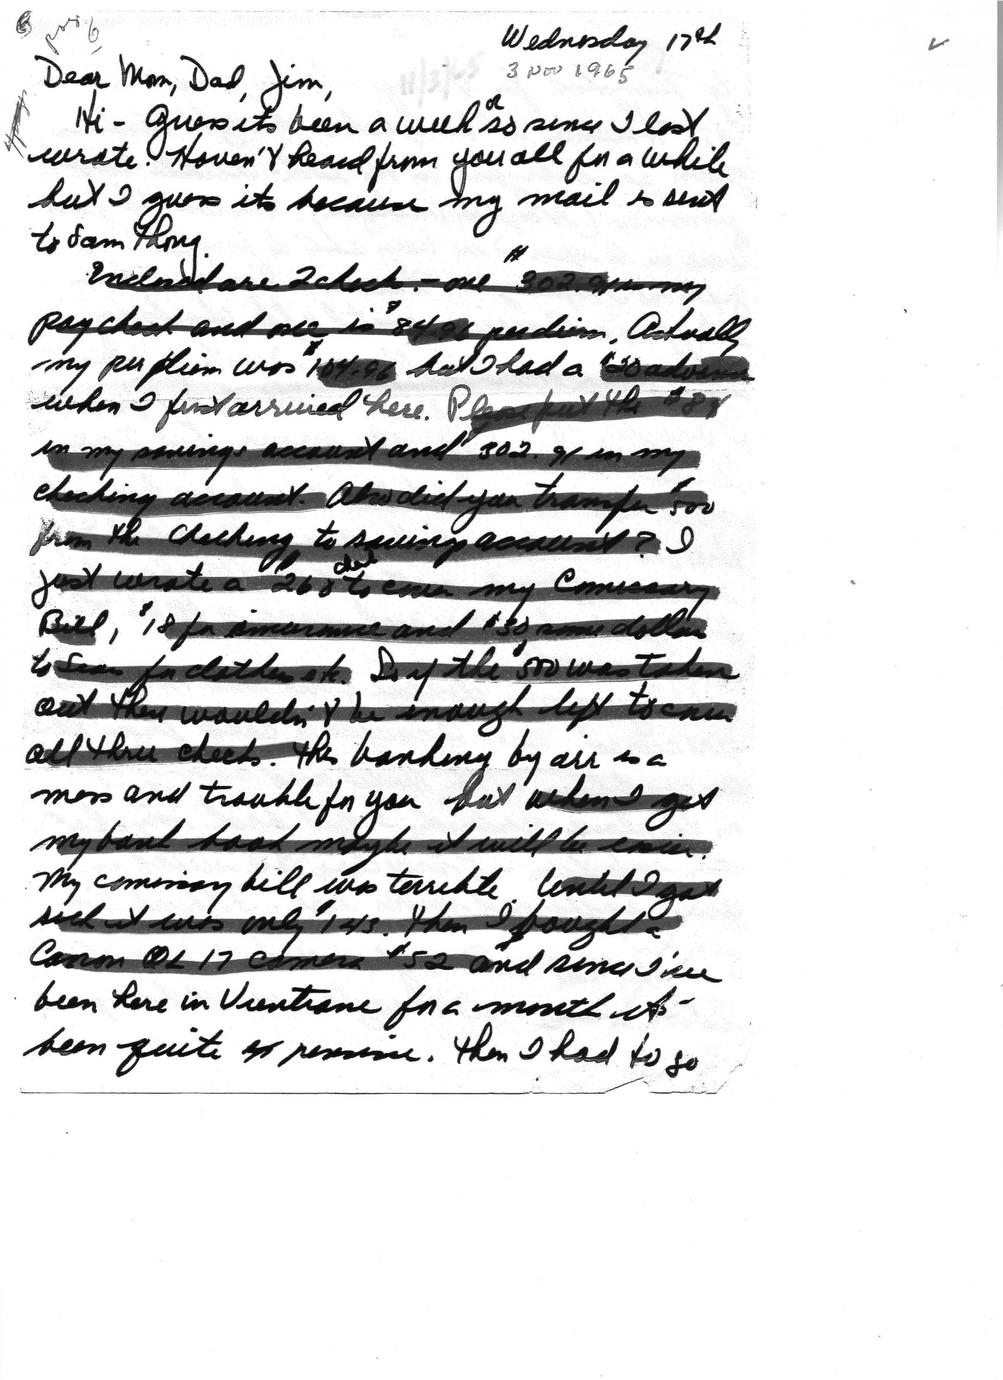 Wednesday 17th
3 NOV 1965
Dear Mom, Dad, Jim,
Hi - Guess its been a week or so since I last
wrote. Haven't heard from you all for a while
but I guess its because my mail is sent
to Sam Thong.
Enclosed are 2 checks - one $302.91 is my
paycheck and one is $84.96 perdiem. Actually
my perdiem was $104.96 but I had a $20 advance
when I first arrived here. Please put the $84
in my savings account and $302.91 in my
checking account. Also did you transfer $500
from the checking to savings account? I
just wrote a $260 check to cover my Comissary
Bill, $18 for insurance and $30 some dollars
to Sears for clothes etc. So if the $500 was taken
out there wouldn't be enough left to cover
all three checks. This banking by air is a
mess and trouble for you but when I get
my bank book maybe it will be easier.
My comissary bill was terrible. Until I got
sick it was only $143. Then I bought a
Canon QL 17 camera $52 and since I've
been here in Vientiane for a month its
been quite expensive. Then I had to go